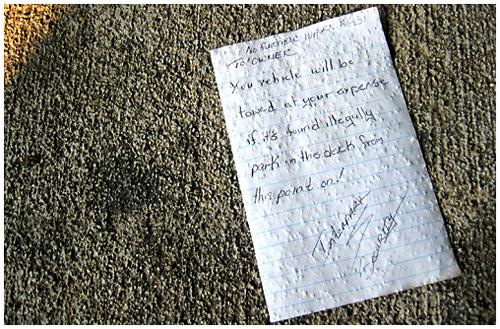 No further warnings!
To: OWNER
You vehicle will be
towed at your expense
if it's found illegally
park in the deck from
this point on!
Security